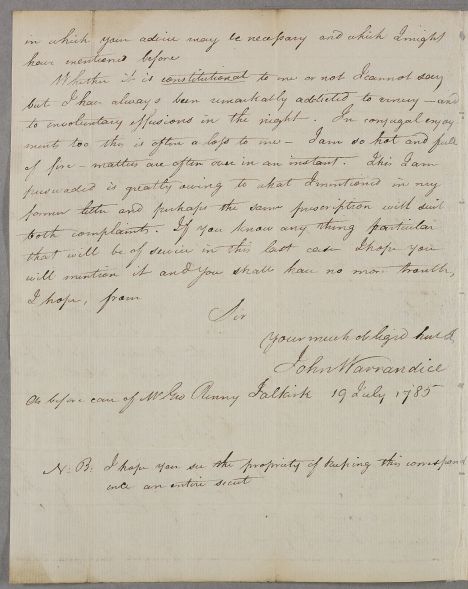 in which your advice may be necessary and which I might
have mentioned before
Whether it is constitutional to me or not I cannot say
but I have always been remarkably addicted to venery – and
to involuntary effusions in the night. In conjugal enjoy
ment too this is often a loss to me – I am so hot and full
of fire – matters are often over in an instant. This I am
persuaded is greatly owing to what I mentioned in my
former letter and perhaps the same prescription will suit
both complaints. If you know any thing particular
that will be of service in this last case I hope you
will mention it and you shall have no more trouble,
I hope, from
Sir
Your much obliged
John Warrandice
As before care of Mr Geo Renny Falkirk 19 July 1785
N.B. I hope you see the propriety of keeping this correspond
ence an entire secret